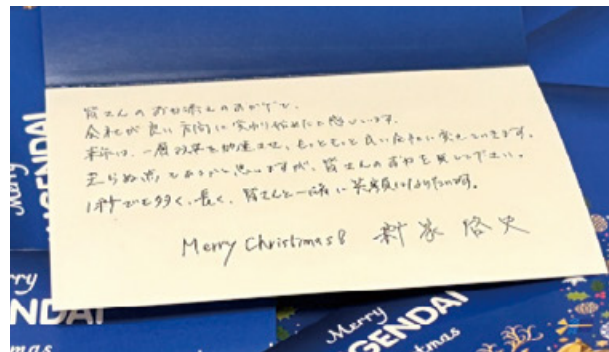 皆さんのお力添えのおかげで、
会社が良い方向に変わり始めたと感じています。
来年は、一層改革を加速させ、もっともっと良い会社に変えていきます。
至らぬ点もあるかと思いますが、皆さんのお力を貸して下さい。
1秒でも多く、長く、皆さんと一緒に笑顔になりたいです。
Merry Christmas 新家 啓史
Merry
GENDAI
Merry
NDAI
mas
Merry
GENDAI
mas